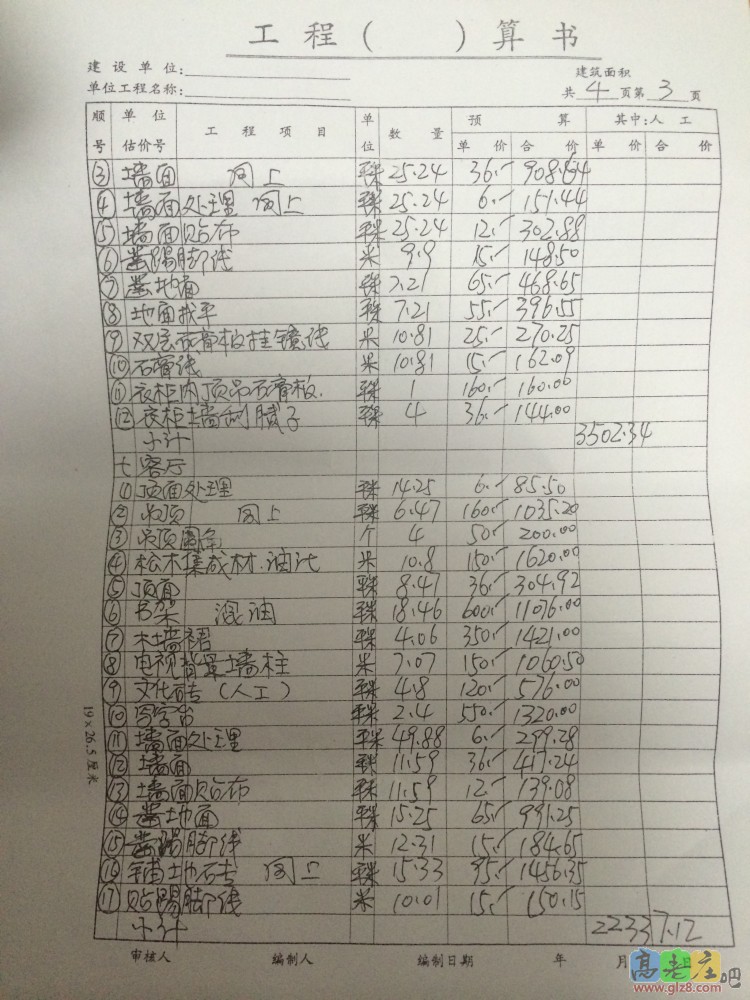 工 程 (　　) 算 书
建 设 单 位:
建筑面积
单位工程名称:
共 4 页第 3 页
顺号 单位估价号 工 程 项 目 单位 数 量 预 算 其中:人 工
单 价 合 价 单 价 合 价
③ 墙面 同上 平米 25.24 36.- 908.64
④ 墙面处理 同上 平米 25.24 6.- 151.44
⑤ 墙面贴布 平米 25.24 12.- 302.88
⑥ 凿踢脚线 米 9.9 15.- 148.50
⑦ 凿地面 平米 7.21 65.- 468.65
⑧ 地面找平 平米 7.21 55.- 396.55
⑨ 双层石膏板挂镜线 米 10.81 25.- 270.25
⑩ 石膏线 米 10.81 15.- 162.09
⑪ 衣柜内顶吊石膏板. 平米 1 160.- 160.00
⑫ 衣柜墙刮腻子 平米 4 36.- 144.00
小计 3502.34
七 客厅
① 顶面处理 平米 14.25 6.- 85.50
② 吊顶 同上 平米 6.47 160.- 1035.20
③ 吊顶圆角 个 4 50.- 200.00
④ 松木集成材.油漆 米 10.8 150.- 1620.00
⑤ 顶面 平米 8.47 36.- 304.92
⑥ 书架 混油 平米 18.46 600.- 11076.00
⑦ 木墙裙 平米 4.06 350.- 1421.00
⑧ 电视背景墙柱 米 7.07 150.- 1060.50
⑨ 文化砖 (人工) 平米 4.8 120.- 576.00
⑩ 写字台 平米 2.4 550.- 1320.00
⑪ 墙面处理 平米 49.88 6.- 299.28
⑫ 墙面 平米 11.59 36.- 417.24
⑬ 墙面贴布 平米 11.59 12.- 139.08
⑭ 凿地面 平米 15.25 65.- 991.25
⑮ 凿踢脚线 米 12.31 15.- 184.65
⑯ 铺地砖 同上 平米 15.33 95.- 1456.35
⑰ 贴踢脚线 米 10.01 15.- 150.15
小计 22337.12
审核人 编制人 编制日期 年 月
19×26.5厘米
高老庄吧
www.glz8.com